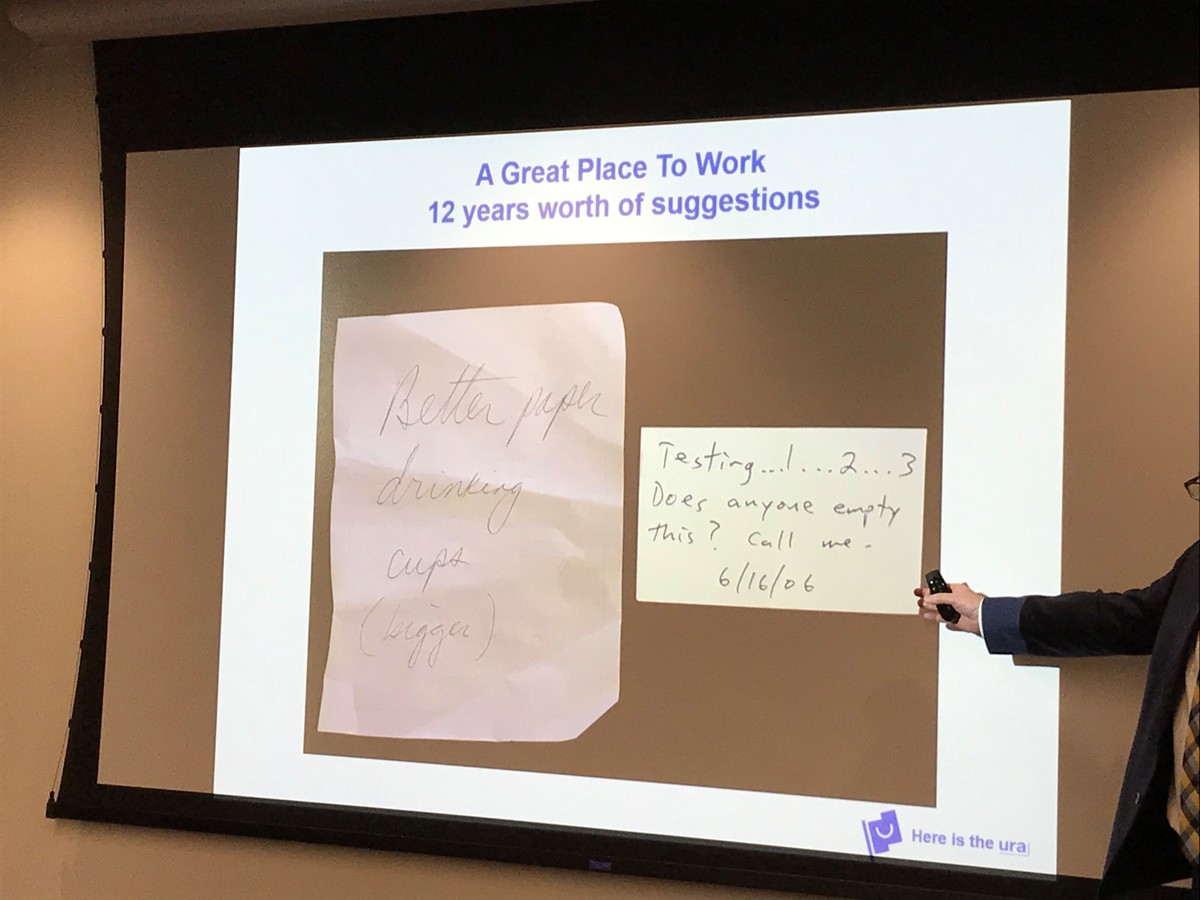 A Great Place To Work
12 years worth of suggestions
Better paper
drinking
cups
(bigger)
Testing...1...2...3
Does anyone empty
this? Call me.
6/16/06
Here is the ura